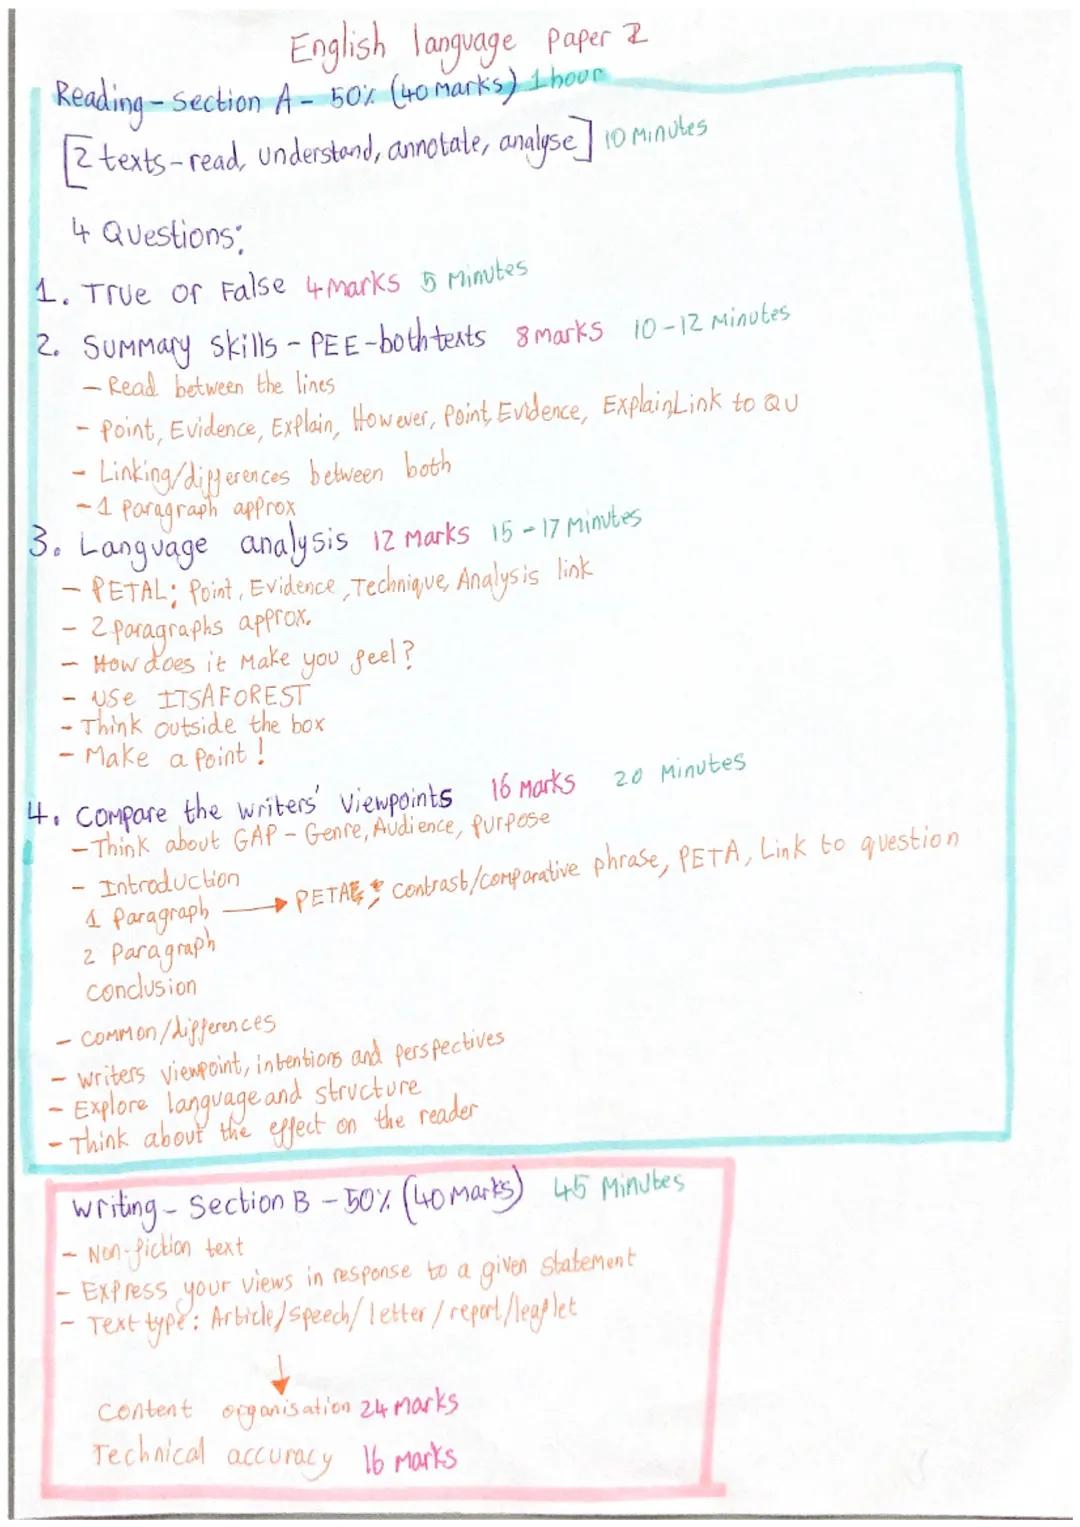 English language Paper 2
Reading - Section A - 50% (40 marks) 1 hour
[2 texts - read, understand, annotate, analyse] 10 Minutes
4 Questions:
1. True or False 4 marks 5 Minutes
2. Summary skills - PEE - both texts 8 marks 10-12 Minutes
- Read between the lines
- Point, Evidence, Explain, However, Point, Evidence, Explain, Link to QU
- Linking/differences between both
- 1 Paragraph approx
3. Language analysis 12 Marks 15-17 Minutes
- PETAL; Point, Evidence, Technique, Analysis link
- 2 paragraphs approx.
- How does it Make you feel?
- USE ITSAFOREST
- Think outside the box
- Make a Point!
4. Compare the writers' Viewpoints 16 Marks 20 Minutes
- Think about GAP - Genre, Audience, Purpose
- Introduction
1 Paragraph → PETAL; Contrast/comparative phrase, PETA, Link to question
2 Paragraph
Conclusion
- Common/differences
- Writers viewpoint, intentions and perspectives
- Explore language and structure
- Think about the effect on the reader
Writing - Section B - 50% (40 marks) 45 Minutes
- Non-fiction text
- Express your views in response to a given statement
- Text type: Article/speech/letter/report/leaflet
Content organisation 24 Marks
Technical accuracy 16 Marks